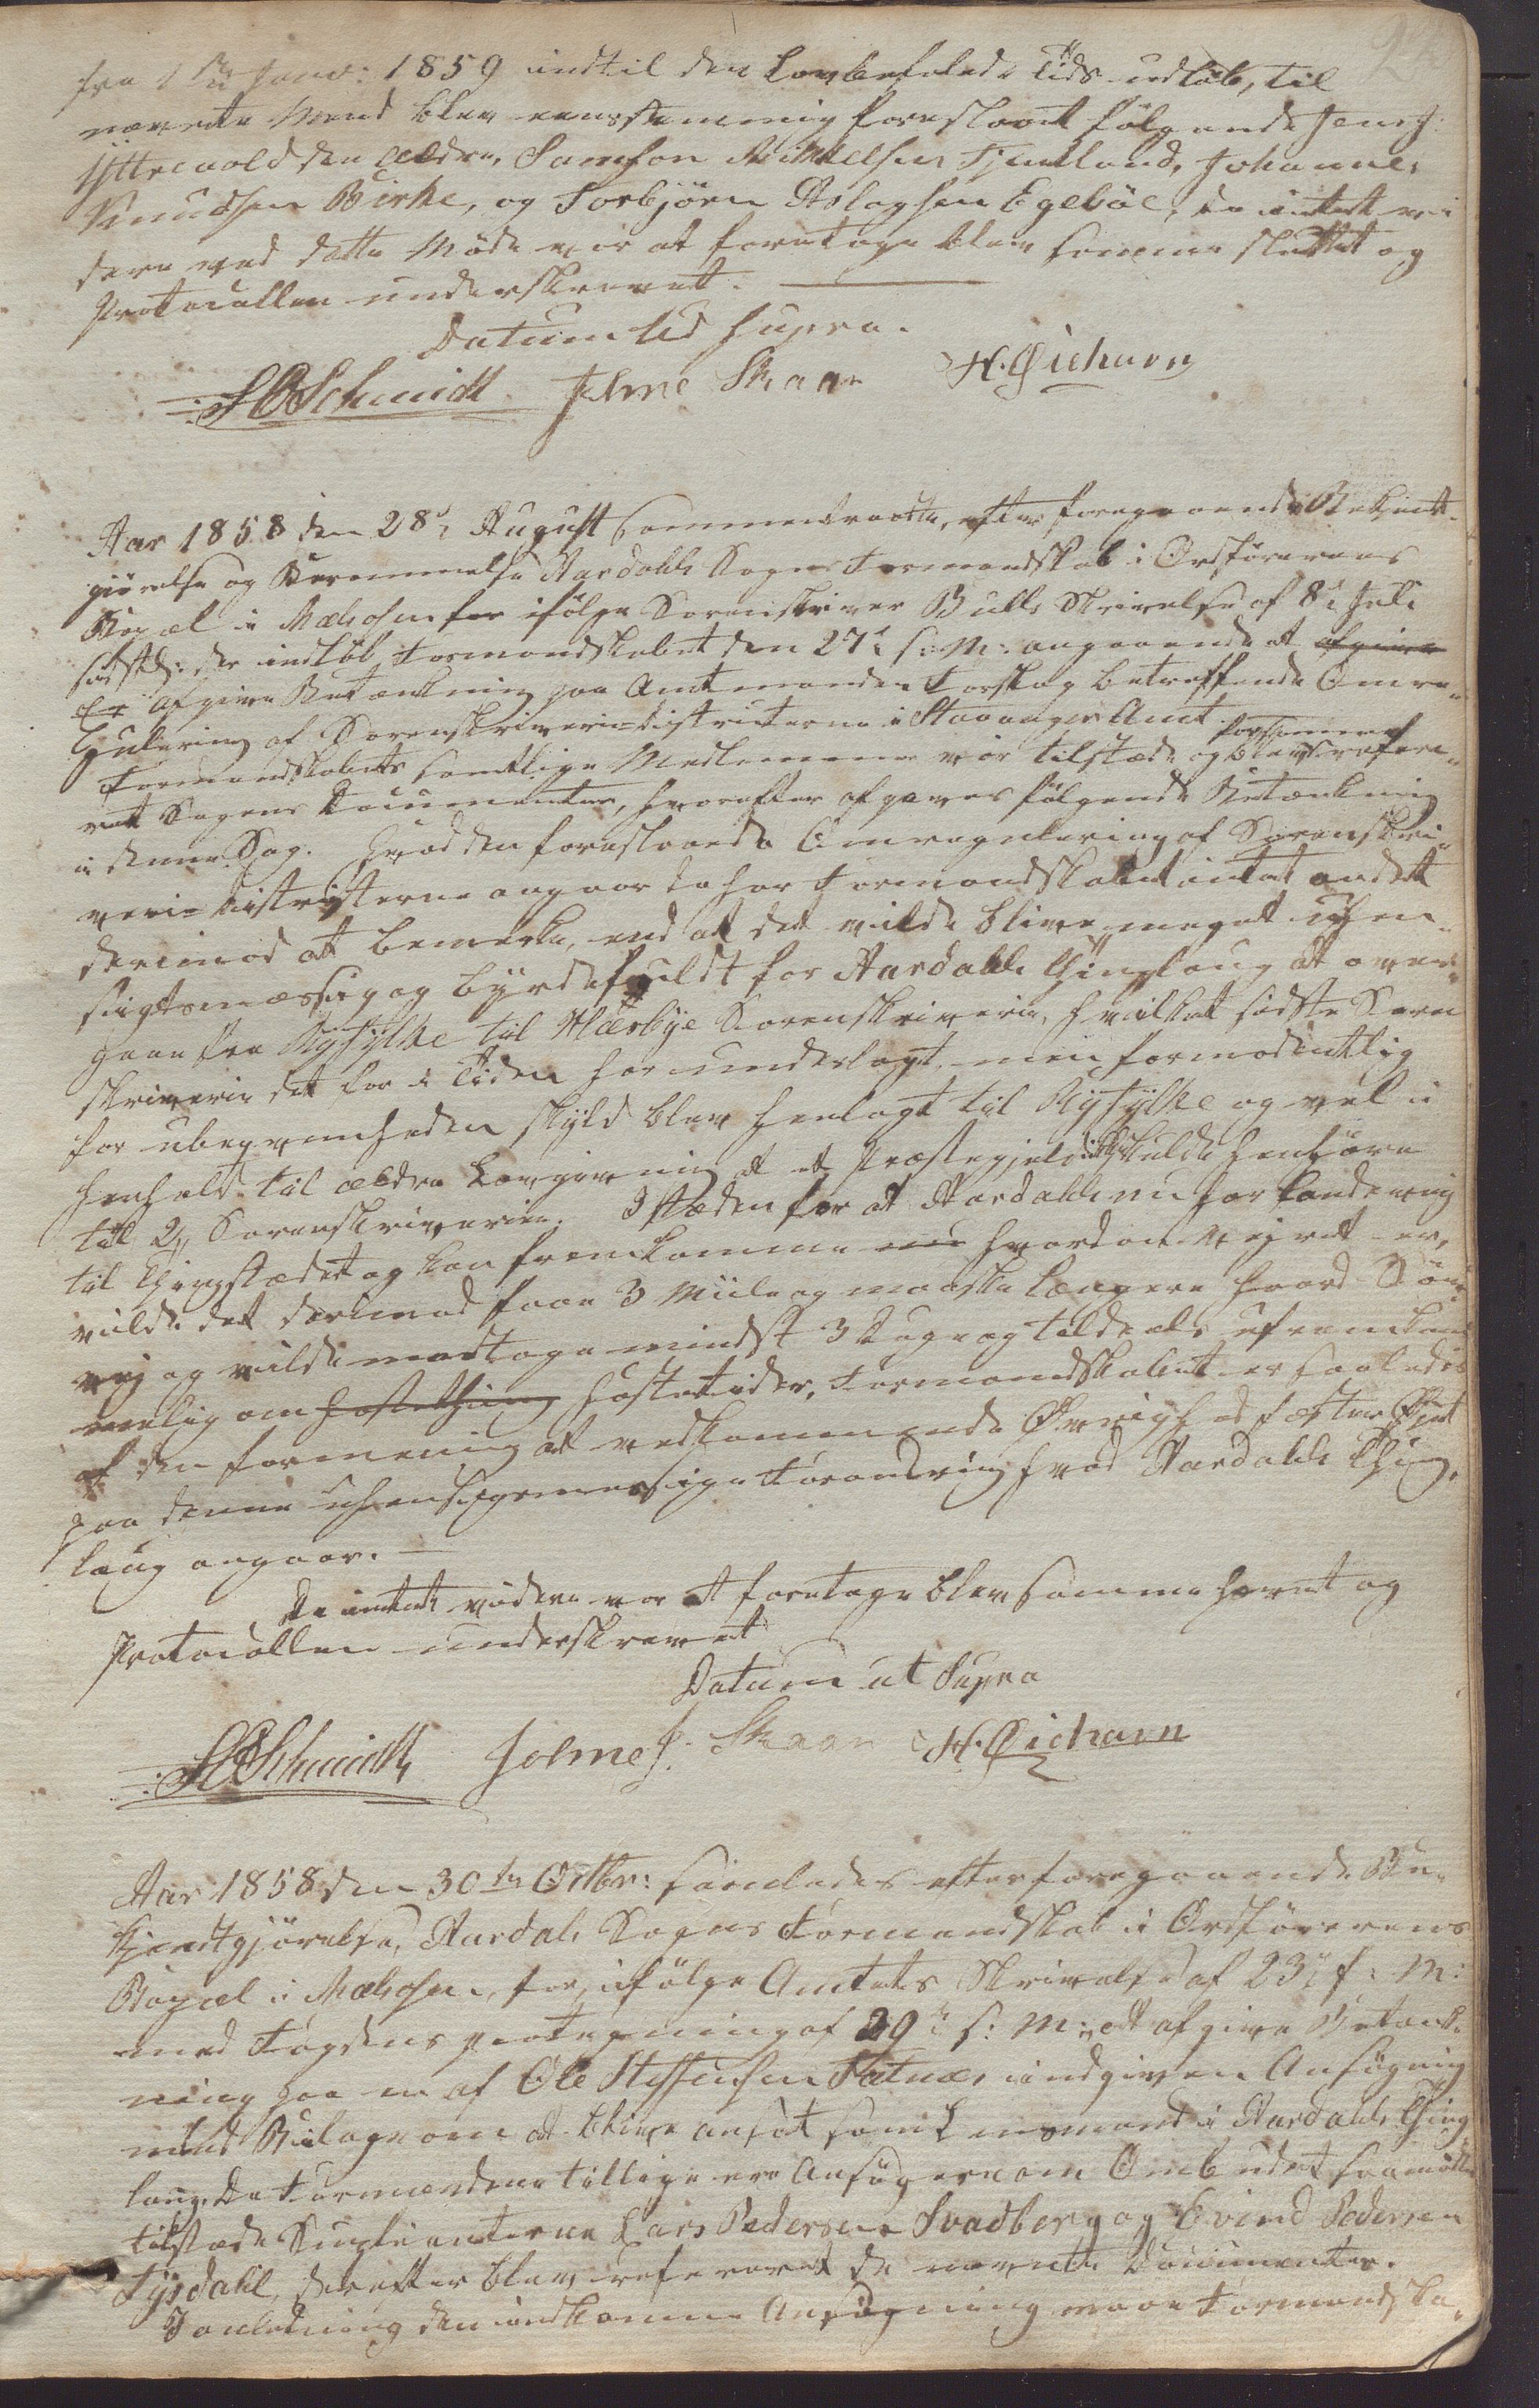 fra 1ste Janv: 1859 indtil den lovbefalede Tids udløb, til
nævnte Mænd blev eensstemmig foreslaaet følgende Jens J:
Ytrevold den ældre, Samson Mikkelsen Fjentland, Johannes
Knudsen Birke, og Torbjørn Aslagsen Egeböe, da intet vi
dere ved dette Møde var at foretage blev samme sluttet og
Protocollen underskrevet.
Datum ud supra.
Schmidt Jolme Skaar H. Qicharn
Aar 1858 den 28de August sammentraadte, efter foregaaende Bekjendt-
giørelse og Berammelse Aardahls Sogns Formandskab i Ordførerens
Bopæl i Mælhsen for ifølge Sorenskriver Bulls Skrivelse af 8de Juli
sidstl: der indløb Formandskabet den 27de s: M: angaaende at afgive
at afgive Betænkning paa Amtmandens Forslag betreffende Omre-
gulering af Sorenskriverie-Districterne i Stavanger Amt.
Formandskabets samtlige Medlemmer var tilstæde og blev forsamlet refere-
ret Sagens Documenter, hvorefter afgaves følgende Betænkning
i denne Sag. Hvad den foreslaaede Omregulering af Sorenskri-
verie Districterne angaar da har Formandskabet intet andet
derimod at bemerke, end at det vilde blive meget uhen-
sigtsmæssig og byrdefuldt for Aardahls Thinglaug at over-
gaae fra Ryfylke til Hæsbye Sorenskriverie, hvilket sidste Soren
skriverie det før i Tiden har underlagt, men formodentlig
for ubeqvemheden skyld blev henlagt til Ryfylke og vel i
henhold til ældre Lovgivning at et Præstegjeld ikke skulde henhøre
til 2de Sorenskriverier. I stæden for at Aardahls nu har Landeveig
til Thingstædet og kan fremkomme nu hvordan Vejret er,
vilde det derimod faae 3 Miile og maaske længere haard Søe-
vej og vilde medtage mindst 3 Dage og tildeels ufremkom
melig om Høstething Høstetider. Formandskabet er saaledes
af den formening at vedkommende Øvrighed fæster Øjet
paa denne uhensigtsmæssige Forandring hvad Aardahls Thing-
laug angaar.
Da intet videre var at foretage blev samme hævet og
Protocollen underskrevet
Datum ut Supra
Schmidt Jolme J. Skaar H. Qicharn
Aar 1858 den 30te Octbr: samledes efter foregaaende Be-
kjendtgjørelse, Aardals Sogns Formandskab i Ordførerens
Bopæl i Mælhsen, for, ifølge Amtets Skrivelse af 23de f: M:
med Fogdens paategning af 29de s: M:, at afgive Betænk-
ning paa en af Ole Steffensen Fatnæs indgiven Ansøgning
med Bilage om at blive ansat som Lensmand i Aardahls Thing
laug. Da Formændene tillige er Ansøgere om Ombudet fremmødte
tilstæde Suplianterne Lars Pedersen Svadberg og Eivind Pedersen
Tysdahl, derefter blev refereret de nævnte Documenter.
I anledning den indkomne Ansøgning maae Formandska-